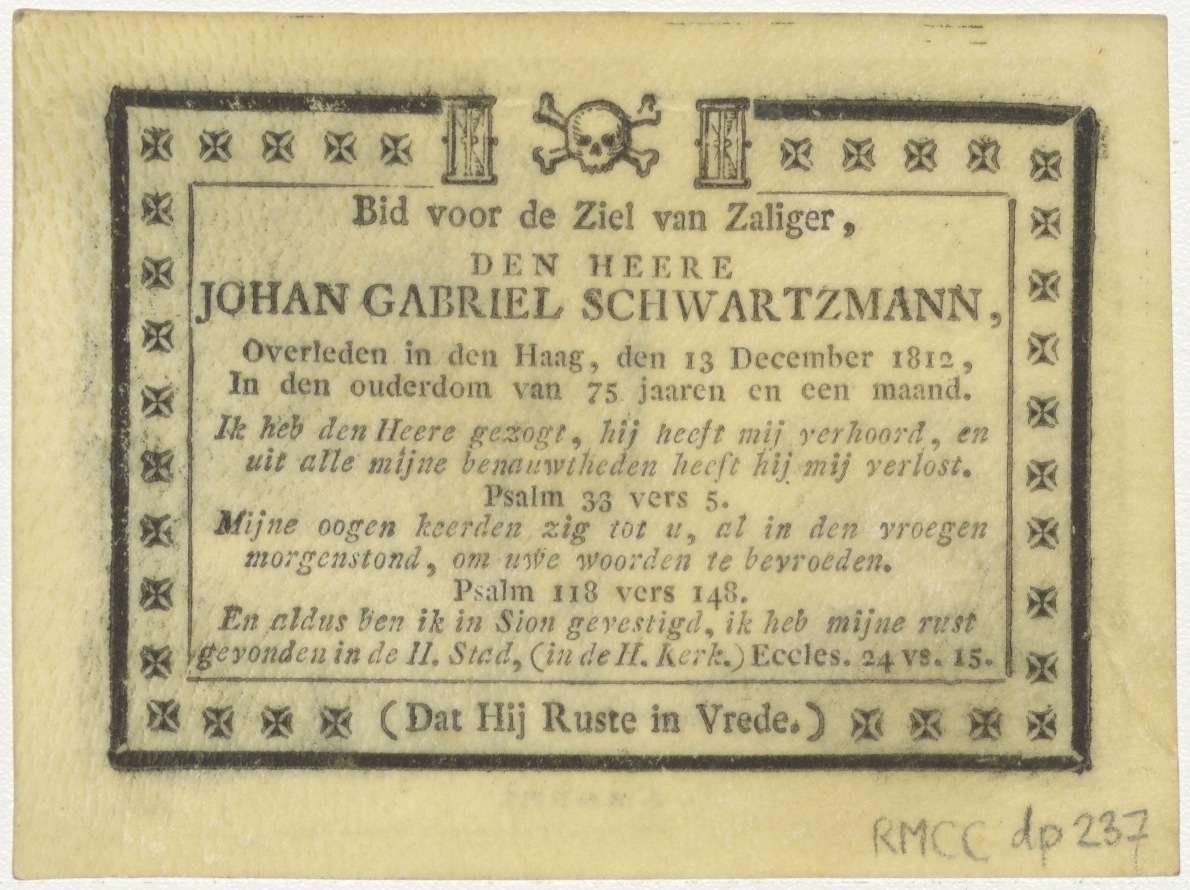 Bid voor de Ziel van Zaliger,
DEN HEERE
JOHAN GABRIEL SCHWARTZMANN,
Overleden in den Haag, den 13 December 1812,
In den ouderdom van 75 jaaren en een maand.
Ik heb den Heere gezogt, hij heeft mij verhoord, en
uit alle mijne benauwtheden heeft hij mij verlost.
Psalm 33 vers 5.
Mijne oogen keerden zig tot u, al in den vroegen
morgenstond, om uwe woorden te bevroeden.
Psalm 118 vers 148.
En aldus ben ik in Sion gevestigd, ik heb mijne rust
gevonden in de H. Stad, (in de H. Kerk.) Eccles. 24 vs. 15.
(Dat Hij Ruste in Vrede.)
RMCC dp 237